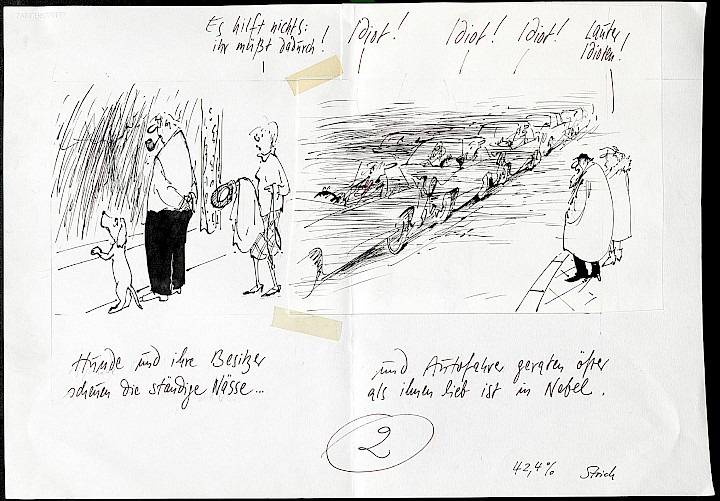 Es hilft nichts:
ihr müßt dadurch!
Idiot!
Idiot!
Idiot!
Lauter
Idioten!
Hunde und ihre Besitzer
scheuen die ständige Nässe...
und Autofahrer geraten öfter
als ihnen lieb ist in Nebel.
2
42,4%
Strich